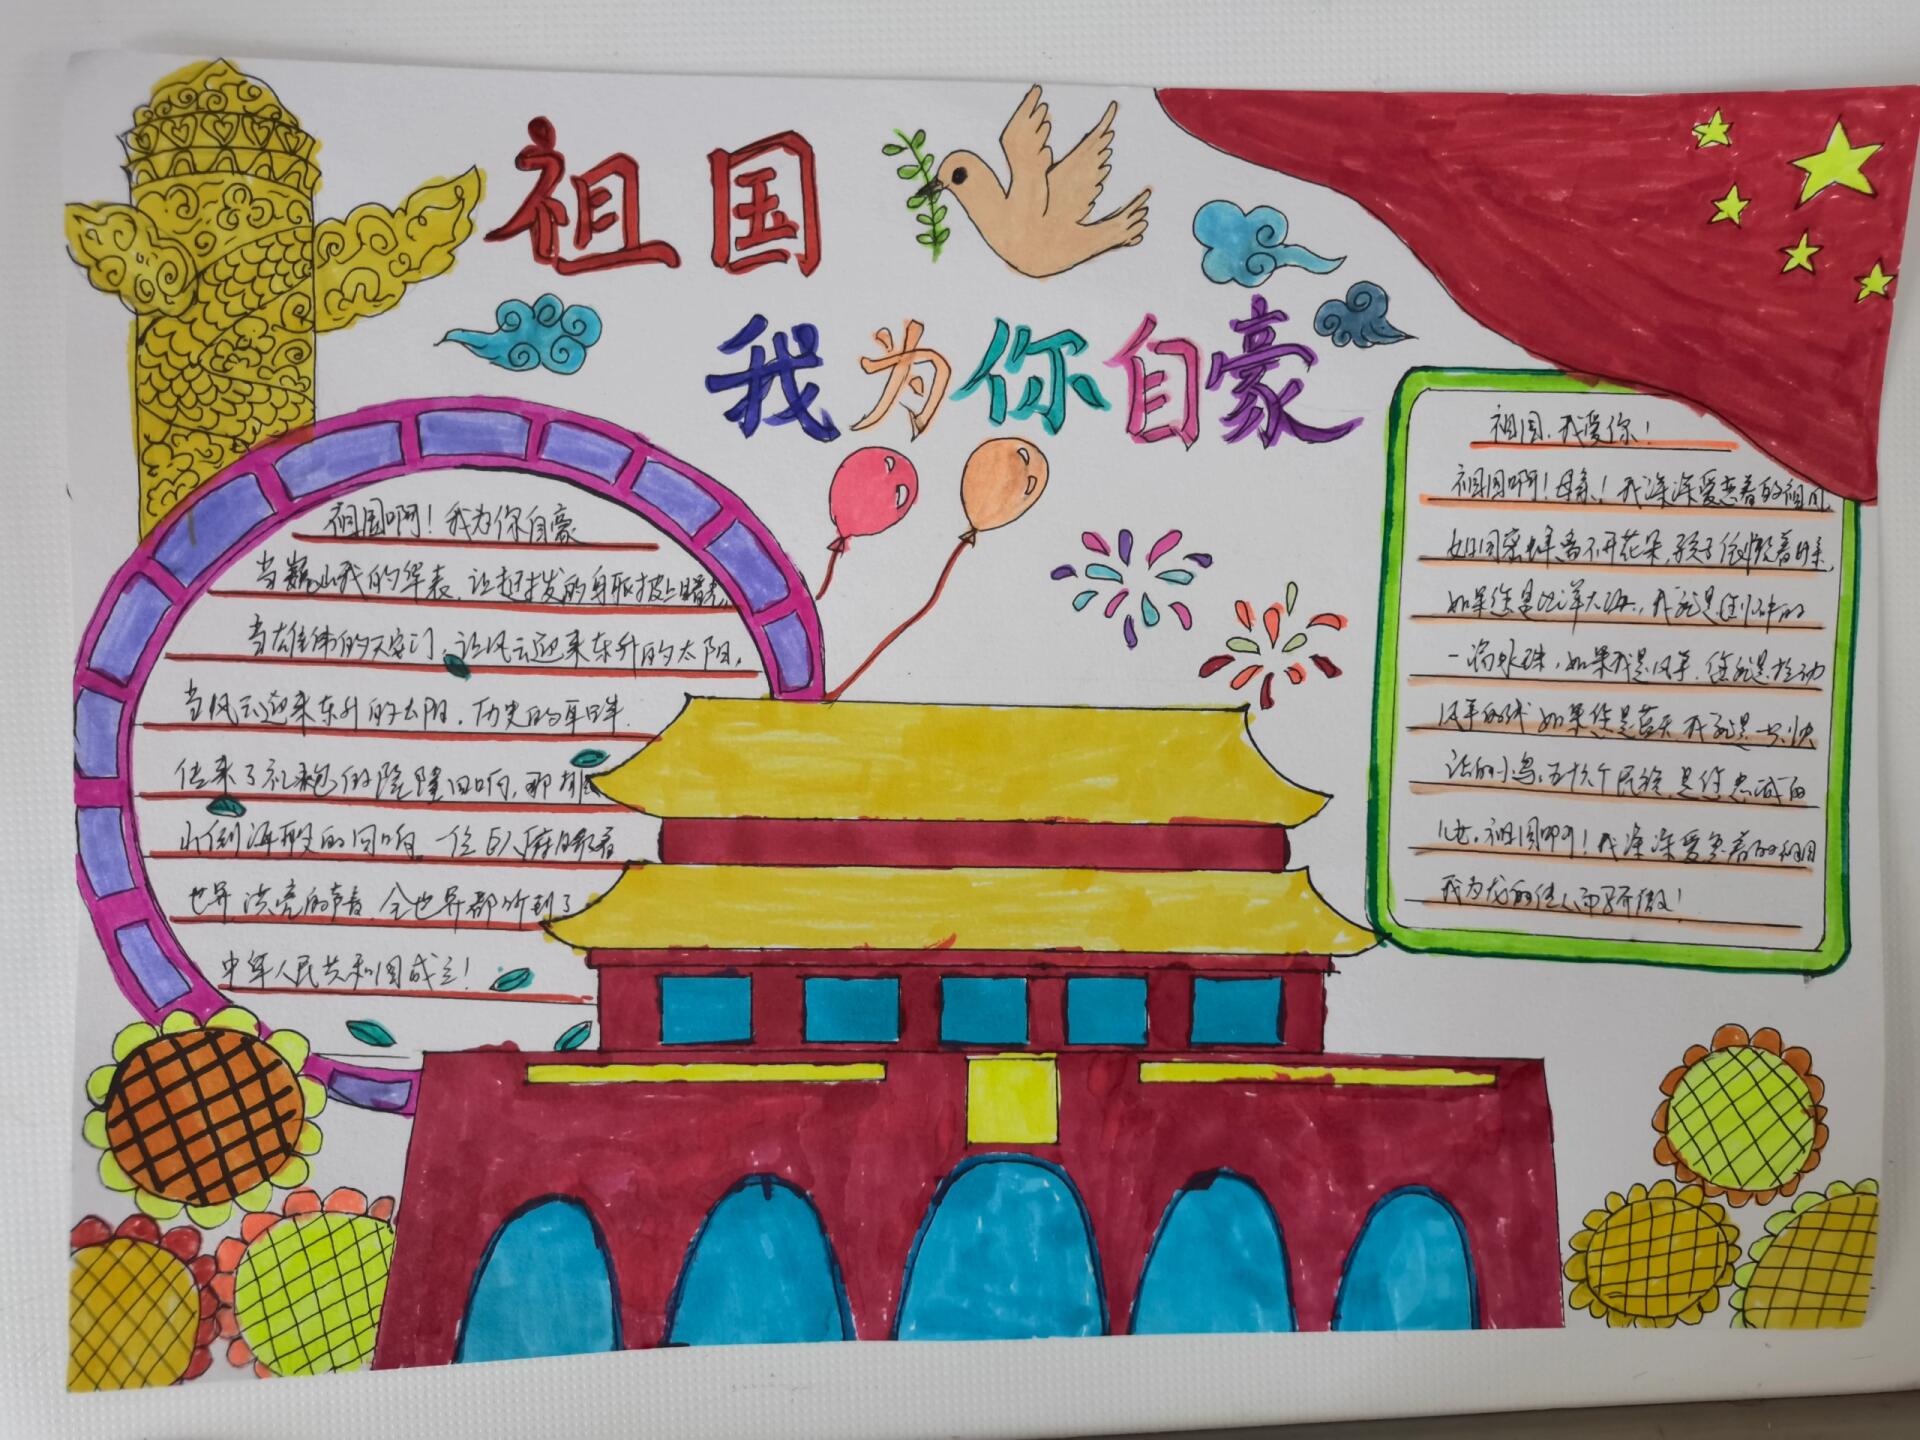 祖国
我为你自豪
祖国啊！我为你自豪
当巍峨的华表，让挺拔的身躯披上曙光
当雄伟的天安门，让风云迎来东升的太阳，
当风云迎来东升的太阳，历史的耳畔
传来了礼炮的隆隆回响，那排
山倒海般的回响，一位巨人
世界 洪亮的声音 全世界都听到了
中华人民共和国成立！
祖国，我爱你！
祖国啊！母亲！我深深爱恋着的祖国，
如同蜜蜂离不开花朵，孩子依恋着母亲，
如果您是大海，我就是您怀中的
一滴水珠，如果我是风筝，您就是拉动
风筝的线 如果您是蓝天 我就是一只快
活的小鸟，五十六个民族，是您忠诚的
儿女，祖国啊！我深深爱恋着的祖国
我为龙的传人而骄傲！